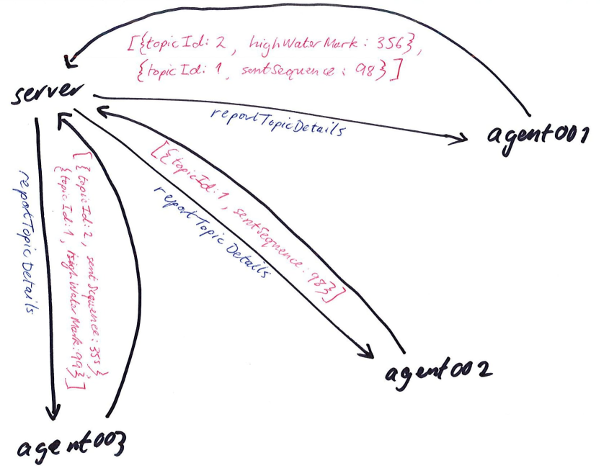 [{topicId: 2, highWaterMark: 356},
{topicId: 1, sentSequence: 98}]
server
reportTopicDetails
agent001
[{topicId: 1, sentSequence: 98}]
reportTopicDetails
agent002
reportTopicDetails
[{topicId: 2, sentSequence: 355}
{topicId: 1, highWaterMark: 99}]
agent003